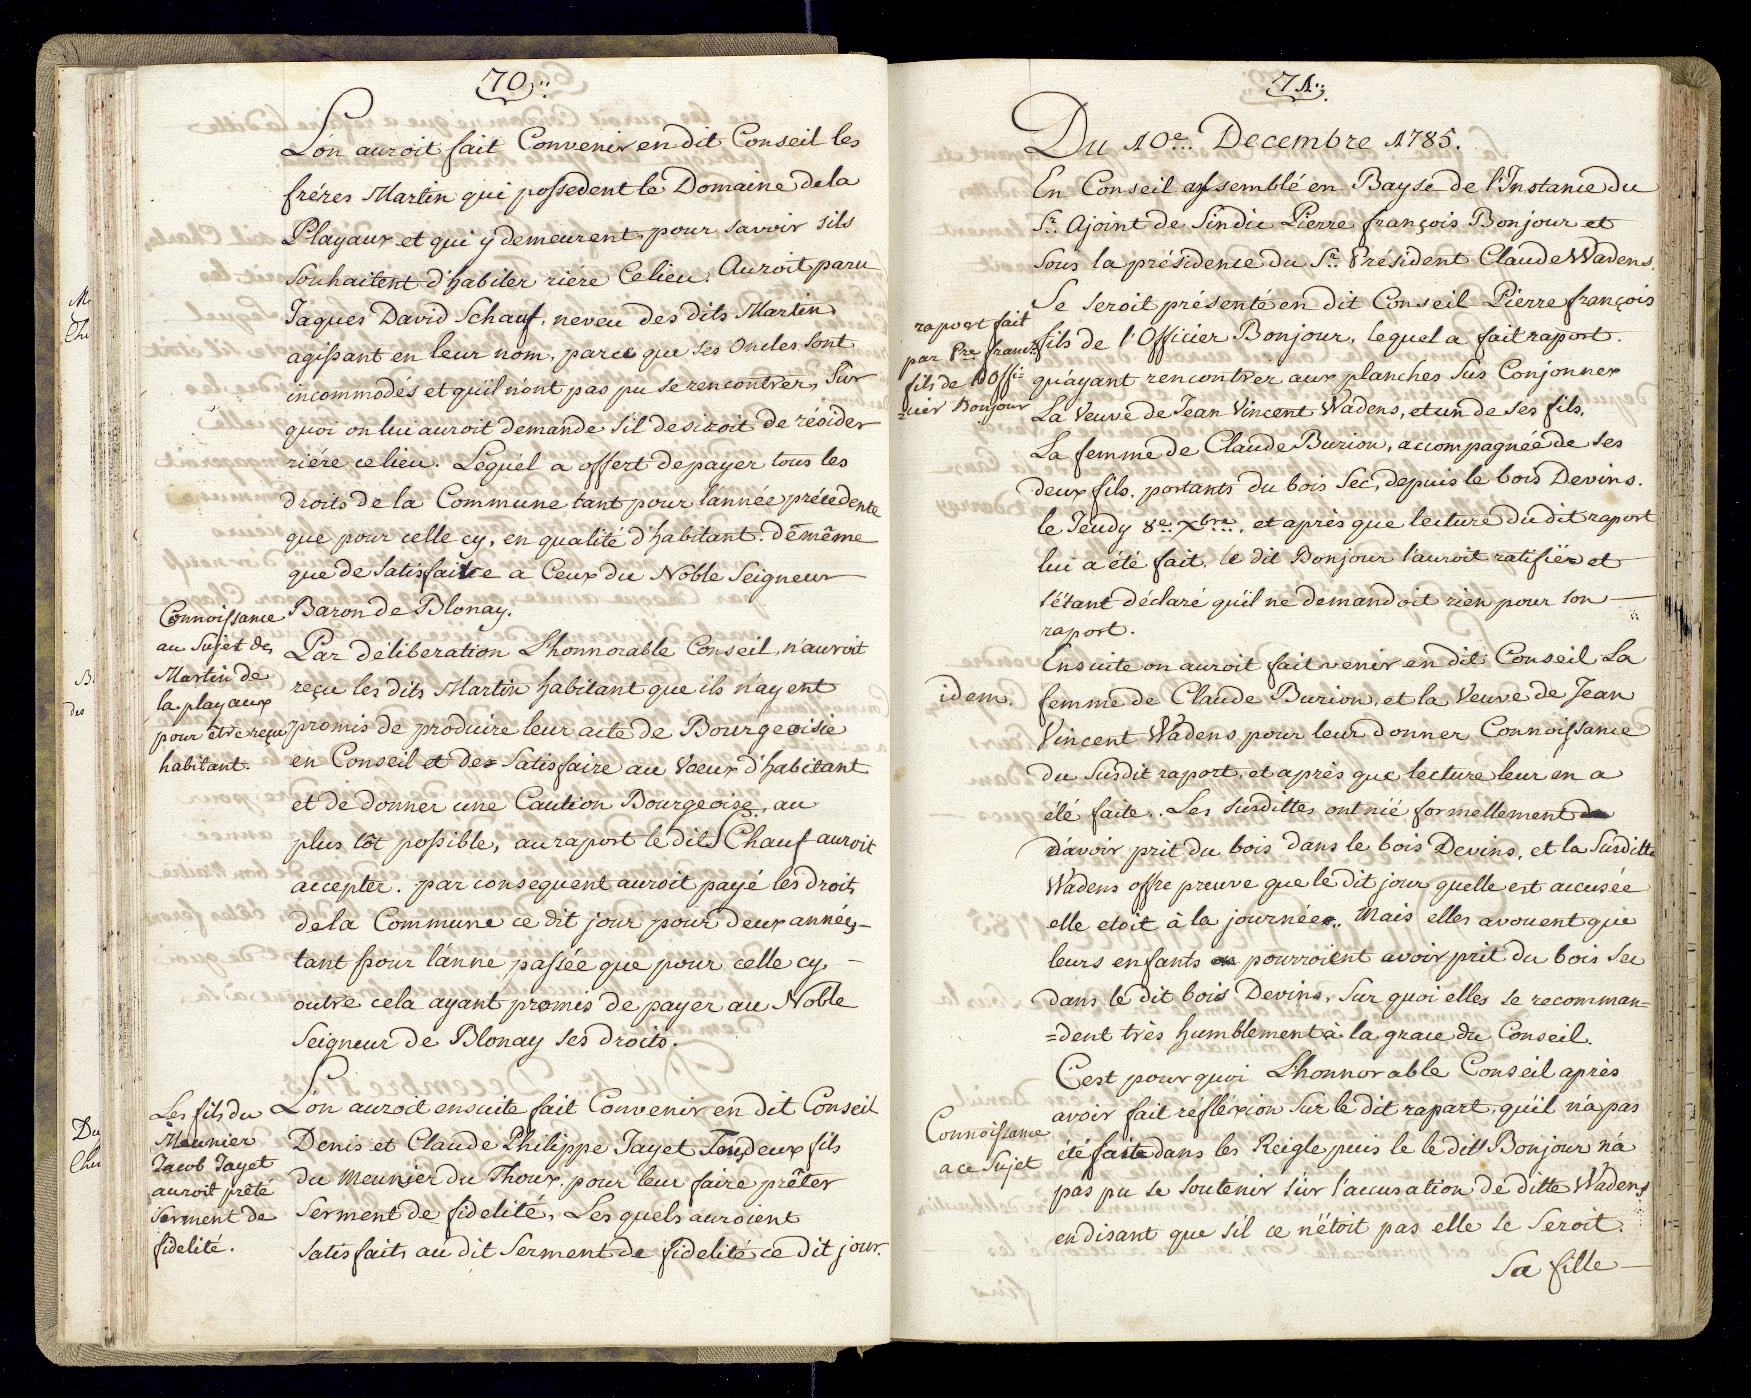 70.
L'on auroit fait Convenir en dit Conseil les
fréres Martin qui possedent le Domaine de la
Playaux et qui y demeurent, pour savoir sils
souhaitent d'habiter riére Ce lieu. Auroit paru
Jaques David Schauf, neveu des dits Martin
agissant en leur nom, parce que ses Oncles sont
incommodés et qu'il n'ont pas pu se rencontrer, Sur
quoi on lui auroit demande s'il desiroit de résider
riére ce lieu. Lequel a offert de payer tous les
droits de la Commune tant pour l'année précedente
que pour celle cy, en qualité d'habitant. De même
que de Satisfaire a Ceux du Noble Seigneur
Baron de Blonay.
Connoissance
au Sujet des
Martin de
la playaux
pour être reçu
habitant.
Par déliberation L'honnorable Conseil, n'auroit
reçu les dits Martin habitant que ils n'ayent
promis de produire leur acte de Bourgeoisie
en Conseil et de Satisfaire au Voeux d'habitant
et de donner une Caution Bourgeoise, au
plus tôt possible, au raport le dit SChauf auroit
accepter. par consequent auroit payé les droits
de la Commune ce dit jour pour deux années
tant pour l'anne passée que pour celle cy,
outre cela ayant promis de payer au Noble
Seigneur de Blonay ses droits.
Les fils du
Meunier
Jacob Jayet
auroit prêté
serment de
fidelité.
L'on auroit ensuite fait Convenir en dit Conseil
Denis et Claude Philippe Jayet deux fils
du meunier du Thoux, pour leur faire prêter
Serment de fidelité, Les quels auroient
satisfaits au dit Serment de fidelité ce dit jour.
71.
Du 10e. Decembre 1785.
En Conseil assemblé en Bayse de l'Instance du
Sr. Ajoint de Sindic Pierre françois Bonjour et
sous la présidence du Sr. Président Claude Wadens.
raport fait
par Pre franc.
fils de l'Offi=
=cier Bonjour
Se seroit présenté en dit Conseil Pierre françois
fils de l'Officier Bonjour, lequel a fait raport.
qu'ayant rencontrer aux planches sus Conjonnex
La Veuve de Jean Vincent Wadens, et un de ses fils,
La femme de Claude Burion, accompagnée de ses
deux fils. portants du bois Sec, depuis le bois Devins.
le Jeudy 8e. Xbre., et après que lecture du dit raport
lui a été fait, le dit Bonjour l'auroit ratifiér et
s'étant déclaré qu'il ne demandoit rien pour son
raport.
idem.
Ensuite on auroit fait venir en dit Conseil La
femme de Claude Burion, et la Veuve de Jean
Vincent Wadens pour leur donner Connoissance
du Susdit raport, et après que lecture leur en a
été faite. Les susdittes ont nié formellement
d'avoir prit du bois dans le bois Devins, et la Susditte
Wadens offre preuve que le dit jour quelle est accusée
elle etoit à la journée. Mais elles avouent que
leurs enfants pourroient avoir prit du bois sec
dans le dit bois Devins, Sur quoi elles se recomman=
=dent très humblement à la grace du Conseil.
Connoissance
a ce Sujet
C'est pourquoi L'honnorable Conseil après
avoir fait refléxion sur le dit rapart, qu'il n'a pas
été faite dans les Reigle puis le le dit Bonjour n'a
pas pu se soutenir sur l'accusation de ditte Wadens,
en disant que s'il ce n'étoit pas elle se Seroit
Sa fille